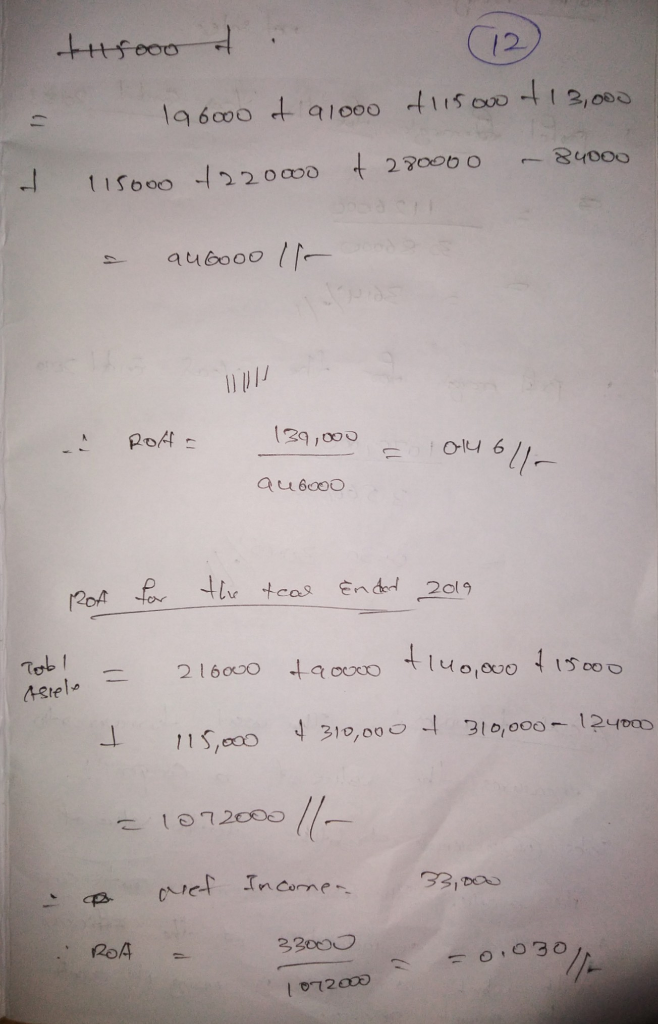 +115000 +.
12
= 196000 + 91000 +115000 +13,000
+ 115000 +220000 + 280000 - 84000
= 946000 //-
∴ ROA = 139,000 / 946000 = 0.146 //-
ROA for the Year Ended 2019
Total Assets = 216000 +90000 +140,000 +15000
+ 115,000 + 310,000 + 310,000 - 124000
= 1072000 //-
∴ Net Income = 33,000
∴ ROA = 33000 / 1072000 = = 0.030 //-